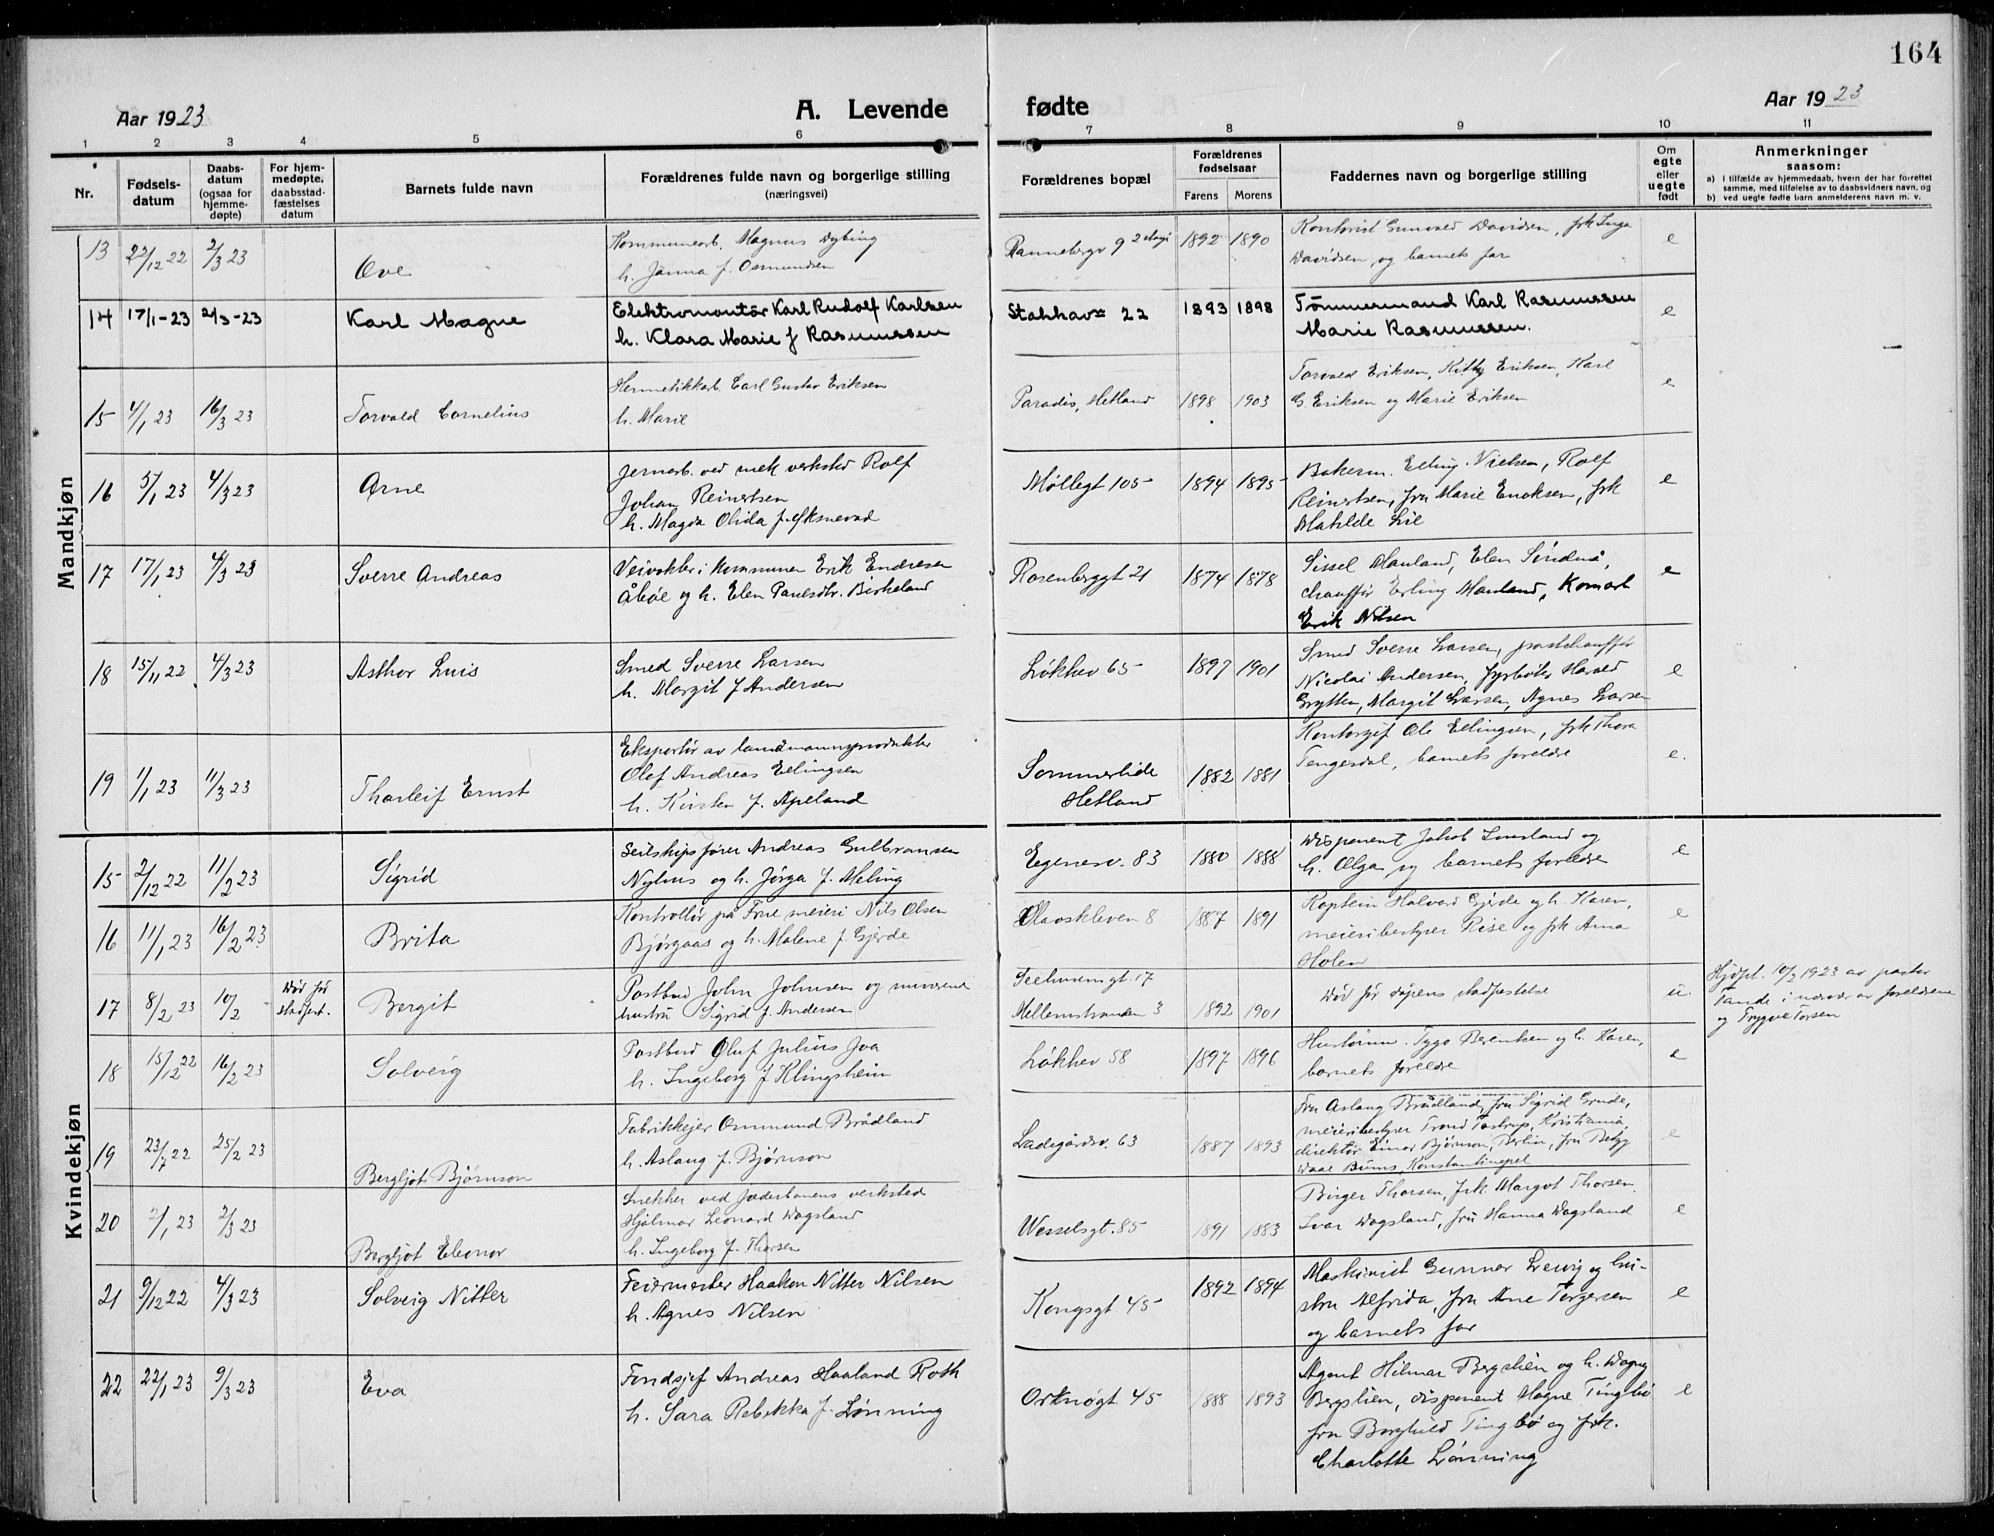 164
Aar 1923
A. Levende
fødte
Aar 1923
1 2 3 4 5 6 7 8 9 10 11
Nr.
Fødsels-
datum
Daabs-
datum
(ogsaa for
hjemme-
døpte)
For hjem-
medøpte,
daabsstad-
fæstelses
datum
Barnets fulde navn
Forældrenes fulde navn og borgerlige stilling
(næringsvei)
Forældrenes bopæl
Forældrenes
fødselsaar
Farens Morens
Faddernes navn og borgerlige stilling
Om
egte
eller
uegte
født
Anmerkninger
saasom:
a) i tilfælde av hjemmedaab, hvem der har forrettet
samme, med tilføielse av to daabsvidners navn, og
b) ved uegte fødte barn anmelderens navn m. v.
Mandkjøn
13 22/12 22 2/3 23 Ove
Kommunearb. Magnus Dybing
h. Janna f. Osmundsen
Rannebergv 9 1892 1890
Kontorist Gunvald Davidsen, frk Inga
Davidsen og barnets far
e
14 17/1-23 2/3-23 Karl Magne
Elektromontör Karl Rudolf Karlsen
h. Klara Marie f Rasmussen
Stakhav 22 1893 1898
Tömmermand Karl Rasmussen
Marie Rasmussen.
e
15 4/1 23 16/3 23 Torvald Cornelius
Hermetikkarb Carl Gustav Eriksen
h. Marie
Paradis, Hetland 1898 1903
Torvald Eriksen, Kitty Eriksen, Karl
G. Eriksen og Marie Eriksen
e
16 5/1 23 4/3 23 Arne
Jernarb. ved mek verksted Rolf
Johan Reinertsen
h. Magda Olida f. Åksnevad
Møllegt 105 1894 1895
Bakerm. Elling Nielsen, Rolf
Reinertsen, fru Marie Enoksen, frk
Mathilde Lie
e
17 17/1 23 4/3 23 Sverre Andreas
Veivokter i kommunen Erik Endresen
Åbøe og h. Elen Paulsdtr. Birkeland
Rosenberggt 21 1874 1878
Sissel Mauland, Elen Sindnå,
chauffør Erling Mauland, Komarb
Erik Nilsen
e
18 15/11 22 4/3 23 Asthor Luis
Smed Sverre Larsen
h. Margit f Andersen
Løkkev 65 1897 1901
Smed Sverre Larsen, postchauffør
Nicolai Andersen, fyrbøter Harald
Grytten, Margit Larsen, Agnes Larsen
e
19 1/1 23 11/3 23 Thorleif Ernst
Eksportør av landmannsprodukter
Olaf Andreas Ellingsen
h. Kirsten f. Apeland
Sommerlide
Hetland
1882 1881
Kontorsjef Ole Ellingsen, frk Thora
Tengesdal, barnets foreldre
e.
Kvindekjøn
15 2/12 22 11/2 23 Sigrid
Seilskipsfører Andreas Gulbransen
Nylius og h. Jørga f. Meling
Egenesv. 83 1880 1888
Disponent Jakob Imsland og
h. Olga og barnets foreldre
e
16 11/1 23 16/2 23 Brita
Kontrollør på Frue meieri Nils Olsen
Bjørgaas og h. Malene f Gjerde
Olavskleven 8 1887 1891
Kaptein Halvard Gjerde og h. Karen,
meieribestyrer Rise og frk Anna
Holen
e
17 8/2 23 10/2 Død før
stadfest. Bergit
Postbud John Johnsen og nuværende
hustru Sigrid f. Andersen
Seehusensgt. 17
Mellemstranden 3 1892 1901
Død før dåpens stadfestelse
u.
Hjdpt. 10/2 1923 av pastor
Tande i nærvær av foreldrene
og Trygve Torsen
18 15/12 22 16/2 23 Solveig
Postbud Oluf Julius Joa
h. Ingeborg f Klingsheim
Løkkev 58 1897 1896
Tygo Berentsen og h. Karen,
barnets foreldre
e
19 23/7 22 25/2 23 Bergljot Bjørnson
Fabrikkejer Ommund Brådland
h. Aslaug f. Bjørnson
Ladegårdsv. 63 1887 1893
Fru Aslaug Brådland, fru Sigrid Grude,
meieribestyrer Trond Tastrup, Kristiania,
direktør Einar Bjørnson, Berlin, fru Betzy
Waae Bums, Konstantinopel
e
20 2/1 23 2/3 23 Bergljot Eleonor
Snekker ved Jæderbanens verksted
Hjalmar Leonard Dagsland
h. Ingeborg f. Thorsen
Wesselsgt. 85 1891 1883
Birger Thorsen, frk Margot Thorsen
Ivar Dagsland, fru Hanna Dagsland
e
21 9/12 22 4/3 23 Solveig Nitter
Feiermester Haakon Nitter Nilsen
h. Agnes Nilsen
Kongsgt 45 1892 1894
Maskinist Gunnar Lervig og hu-
stru Alfrida, fru Ane Torgersen
og barnets far
e
22 22/1 23 9/3 23 Eva
Fondsjef Andreas Haaland Roth
h. Sara Rebekka f. Lønning
Orknøgt 45 1888 1893
Agent Hilmar Bergslien og h. Dagny
Bergslien, disponent Magne Tingbø
fru Borghild Tingbø og frk.
Charlotte Lønning
e